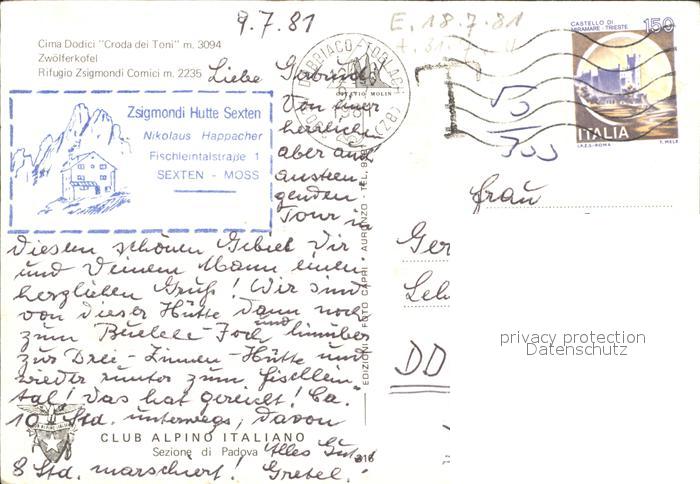 9.7.81
E. 18.7.81
Cima Dodici "Croda dei Toni" m. 3094
Zwölferkofel
Rifugio Zsigmondi Comici m. 2235
Zsigmondi Hutte Sexten
Nikolaus Happacher
Fischleintalstraße 1
SEXTEN - MOSS
Liebe
Von einer
herrlichen
aber auch
anstren-
genden
Tour in
diesem schönen Gebiet Dir
und Deinem Mann einen
herzlichen Gruß! Wir sind
von dieser Hütte dann noch
zum Büllele-Joch und hinüber
zur Drei-Zinnen-Hütte und
wieder runter zum Fischlein-
tal! Das hat gereicht! Ca.
10 Std. unterwegs, davon
8 Std. marschiert! Alles Gute
Gretel.
CLUB ALPINO ITALIANO
Sezione di Padova
316
EDIZIONI FOTO CAPRI - AURONZO - TEL.
DOBBIACO-TOBLACH
CASTELLO DI
MIRAMARE - TRIESTE
150
ITALIA
I.P.Z.S. - ROMA
T. MELE
Frau
Ger
Leh
DD
privacy protection
Datenschutz